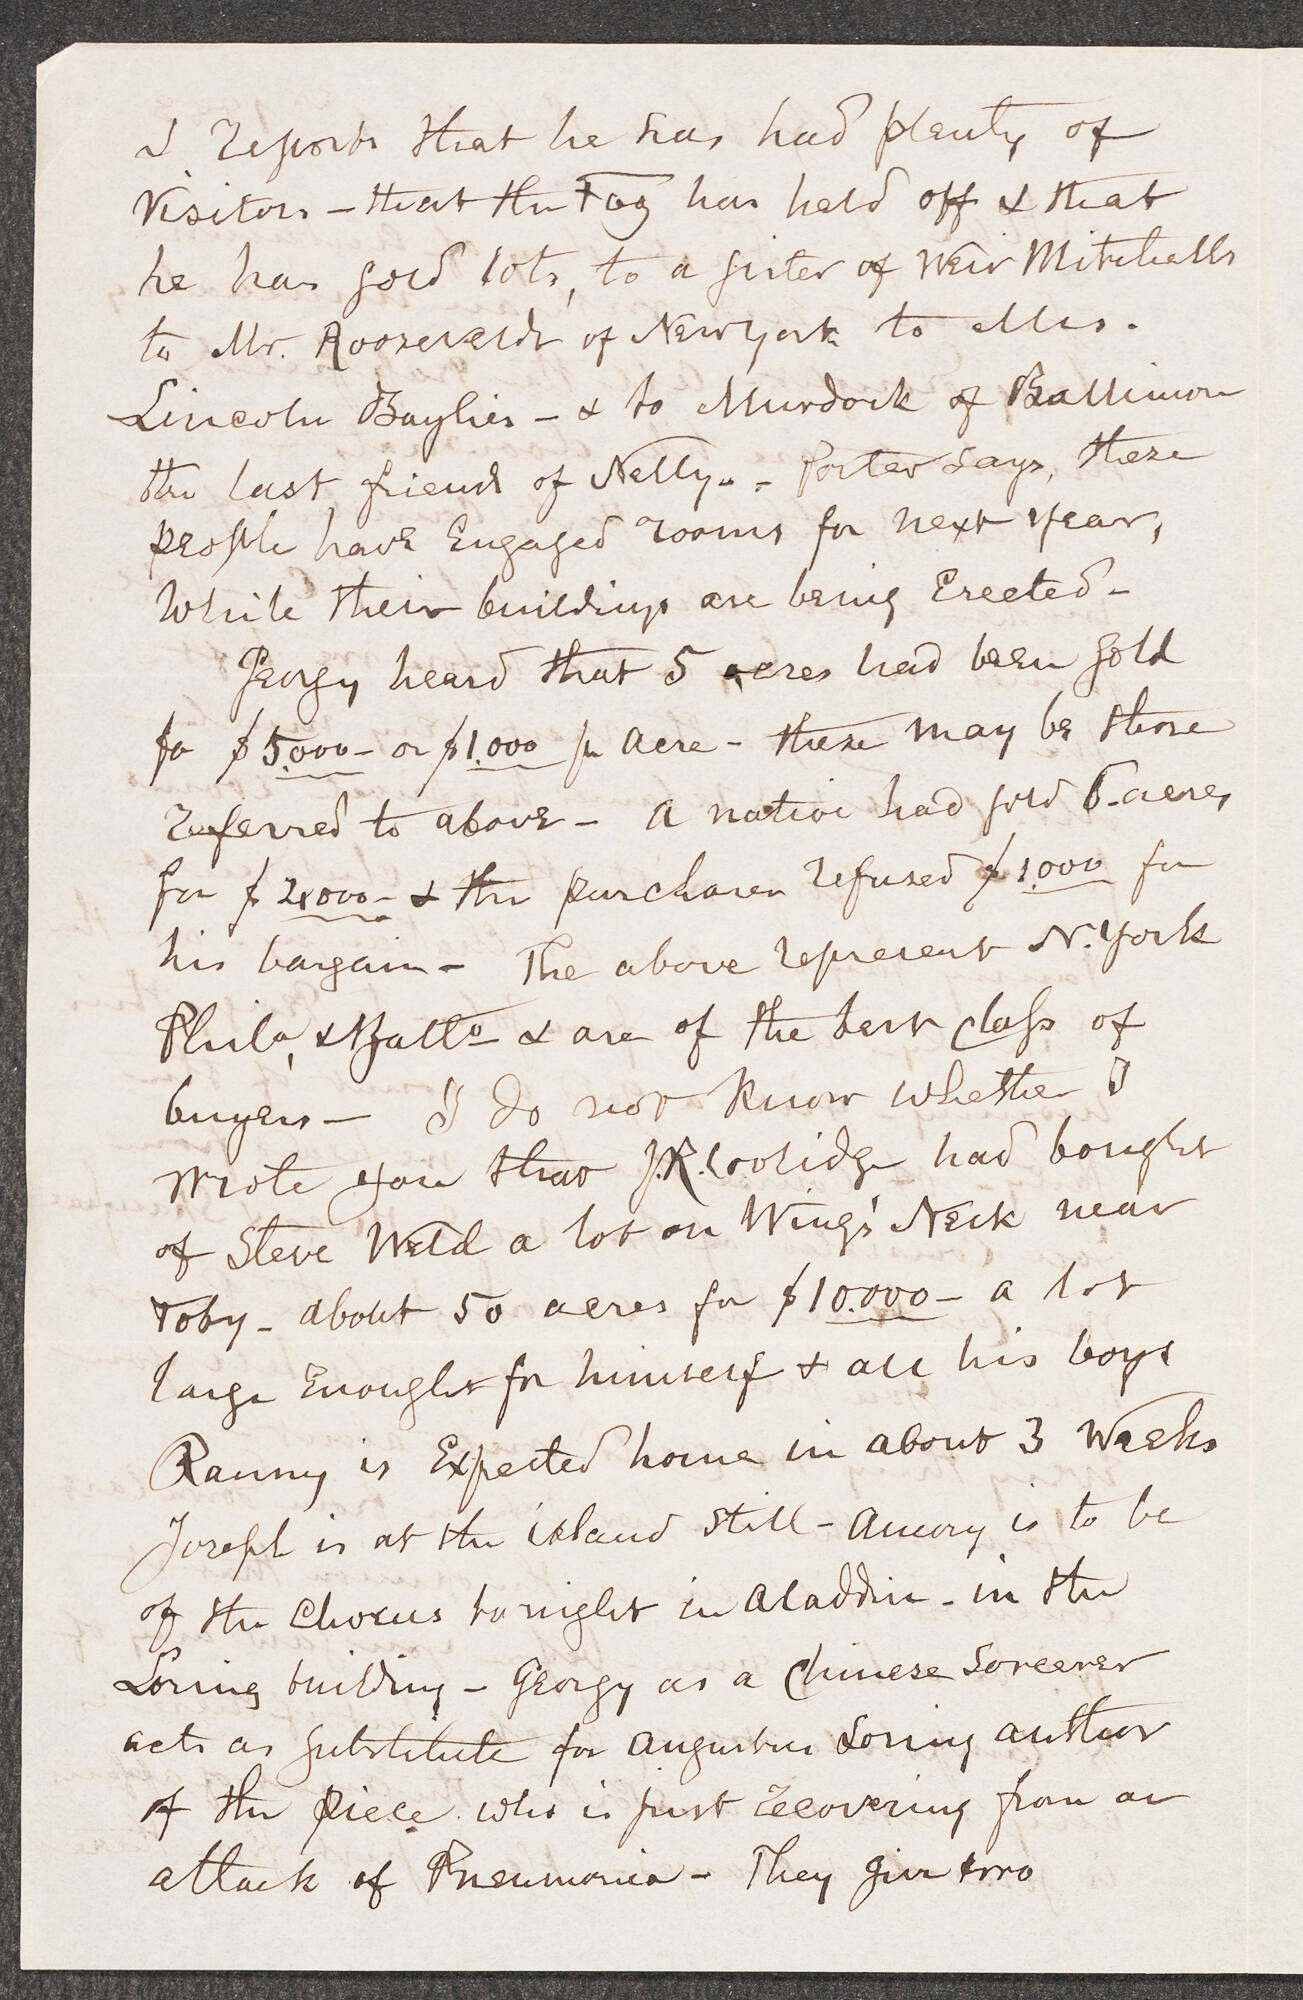 & reports that he has had plenty of
Visitors – that the Fog has held off & that
he has sold lots, to a sister of Weir Mitchells
to Mr. Rooseveldt of New York to Mrs.
Lincoln Baylies – & to Murdock of Baltimore
the last friend of Nelly. – Porter says, these
people have Engaged rooms for next year,
While their buildings are being Erected –
Georgy heard that 5 acres had been sold
for $5.000 – or $1.000 pr acre – these may be those
referred to above – A native had sold 6. acres
for $ 2.000 – & the purchaser refused $1.000 for
his bargain – The above represent N. York
Phila, & Balto – & are of the best class of
buyers – I do not know whether I
wrote you that J.R. Coolidge had bought
of Steve Weld a lot on Wing's Neck near
Toby – about 50 acres for $10.000 – a lot
large Enough for himself & all his boys
Ranny is Expected home in about 3 Weeks
Joseph is at the island still – Amory is to be
of the Chorus tonight in Aladdin – in the
Loring building – Georgy as a Chinese Sorcerer
acts as substitute for Augustus Loring author
of the piece who is just recovering from an
attack of Pneumonia – They give two